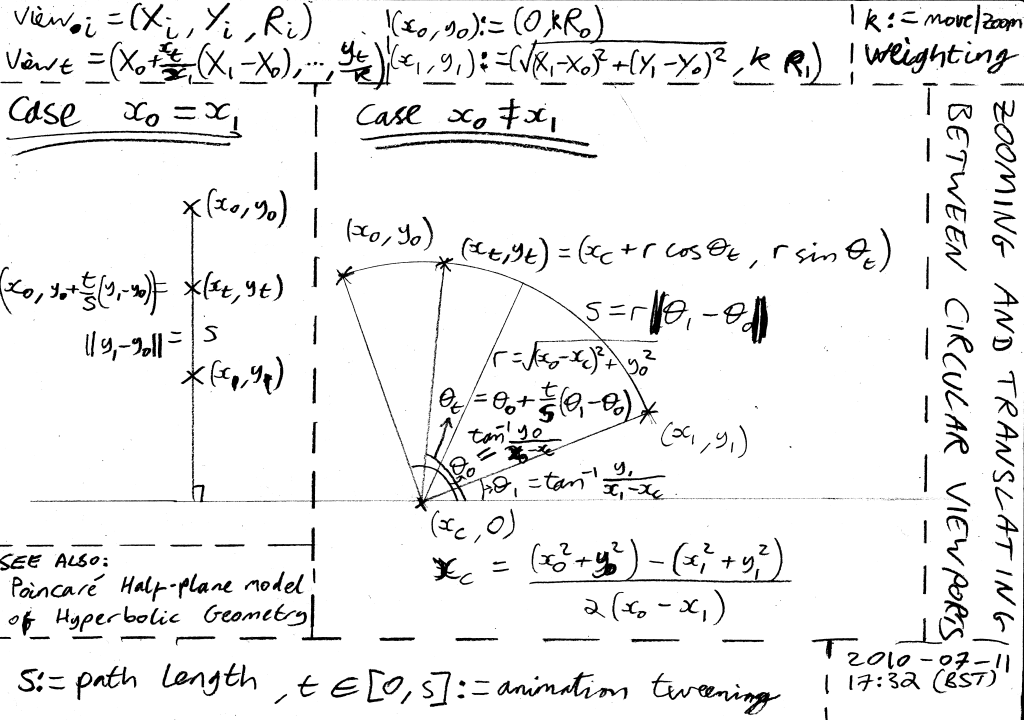 View.i = (Xi, Yi, Ri)
Viewt = (X0+xt/x1(X1-X0),...,yt/k)
(x0, y0):=(0,kR0)
(x1, y1):=(√(X1-X0)²+(Y1-Y0)², k R1)
k:=move/zoom
weighting
Case x0 = x1
(x0, y0)
(x0, y0+t/s(y1-y0))= (xt, yt)
||y1-y0|| = s
(x1, y1)
Case x0 ≠ x1
(x0, y0)
(xt, yt) = (xc + r cos θt, r sin θt)
s = r||θ1 - θ0||
r=√(x0-xc)²+y0²
θt = θ0+t/s(θ1-θ0)
θ0 = tan⁻¹ y0/x0-xc
(x1, y1)
θ1 = tan⁻¹ y1/x1-xc
(xc, 0)
xc = (x0²+y0²)-(x1²+y1²)/2(x0-x1)
ZOOMING AND TRANSLATING
BETWEEN CIRCULAR VIEWPORTS
SEE ALSO:
Poincaré Half-plane model
of Hyperbolic Geometry
s:= path length, t∈[0,s]:=animation tweening
2010-07-11
17:32 (BST)